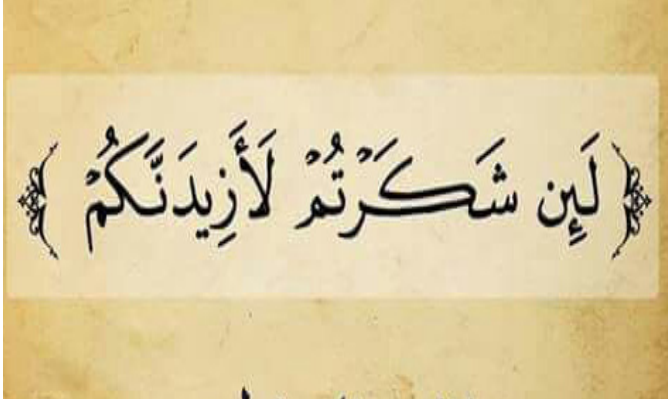 ﴿ لَئِن شَكَرْتُمْ لَأَزِيدَنَّكُمْ ﴾